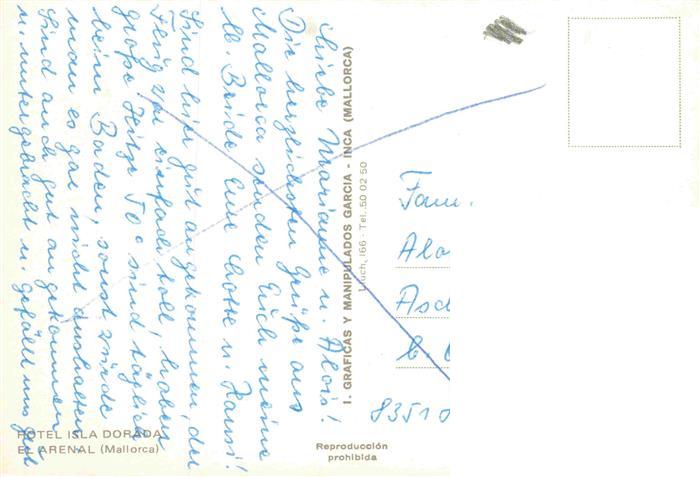 Liebe Marianne u. Alois!
Die herzlichsten Grüße aus
Mallorca senden Euch meine
Lb. Beide Eure Lotte u. Hansi!
Sind hier gut angekommen, der
Flug war einfach toll, haben
große Hitze 50° sind täglich
beim Baden, sonst würde
man es gar nicht aushalten
Sind auch gut angekommen
u. untergebracht u. gefällt uns gut
I. GRAFICAS Y MANIPULADOS GARCIA - INCA (MALLORCA)
Lluch, 166 - Tel. 50 02 50
Fam.
Alo
Asc
83510
HOTEL ISLA DORADA
EL ARENAL (Mallorca)
Reproducción
prohibida